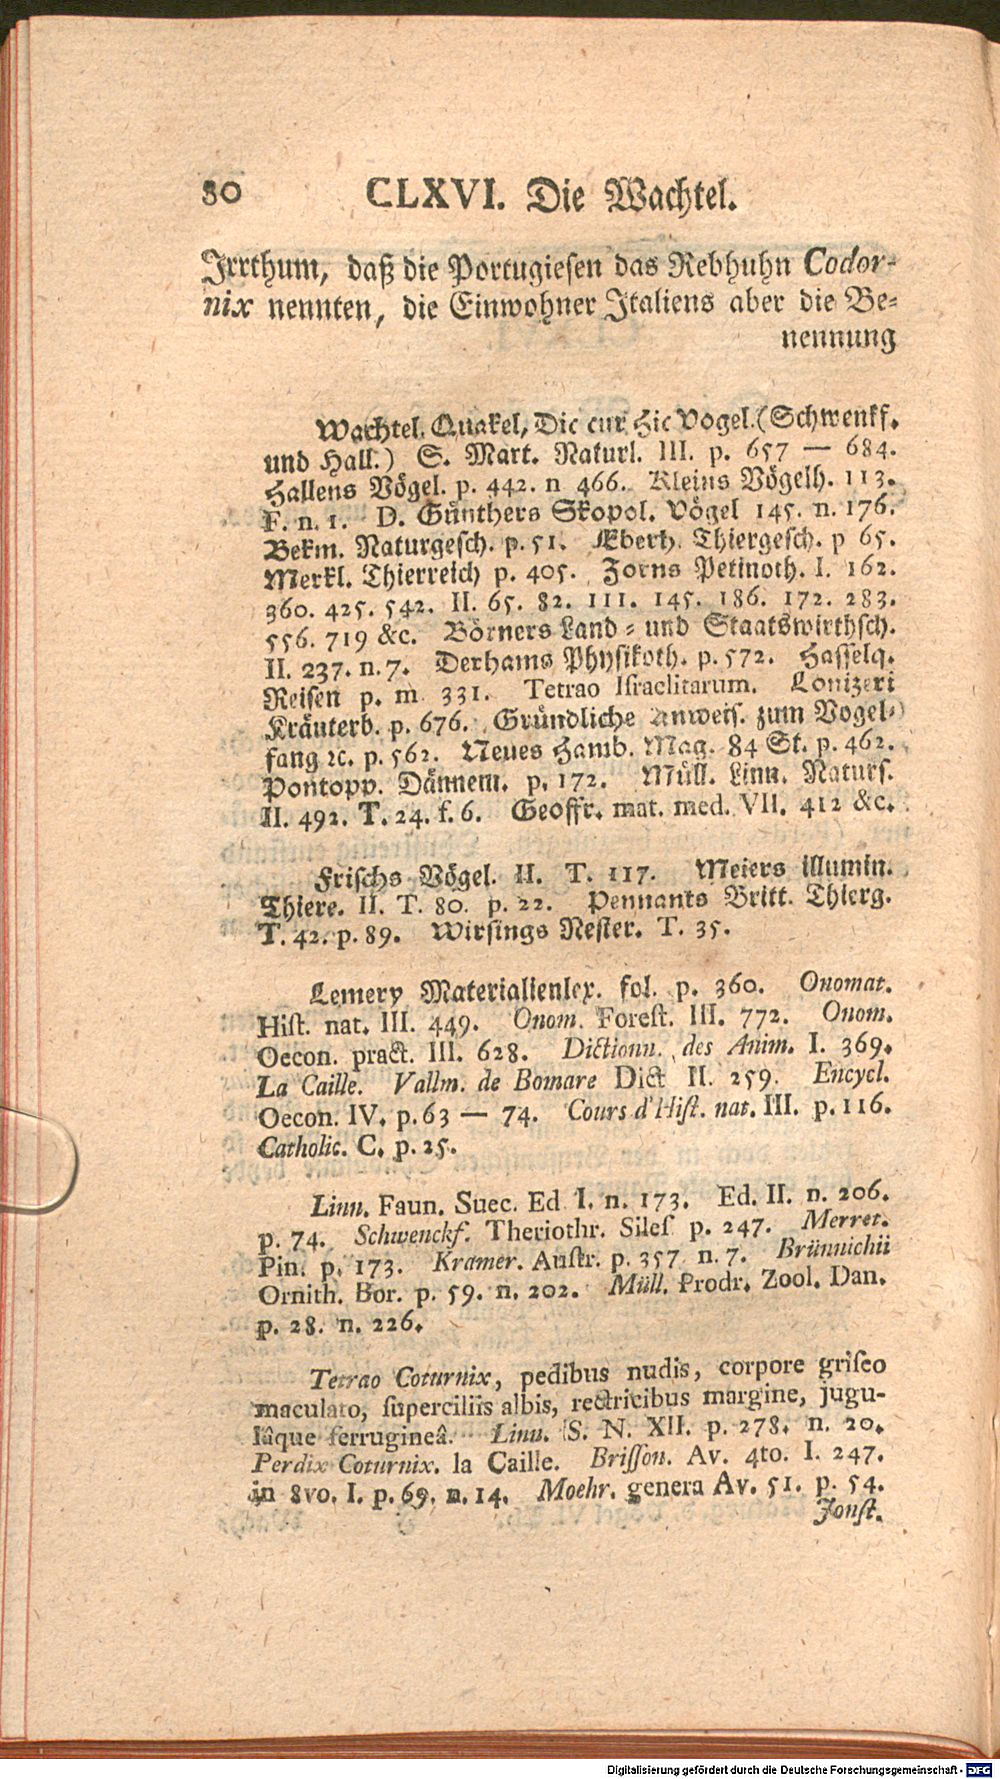 80 CLXVI. Die Wachtel.
Irrthum, daß die Portugiesen das Rebhuhn Codor-
nix nennten, die Einwohner Italiens aber die Be-
nennung
Wachtel. Quakel, Dic cur hic Vogel. (Schwenkf.
und Hall.) S. Mart. Naturl. III. p. 657 — 684.
Hallens Vögel. p. 442. n 466. Kleins Vögelh. 113.
F. n. 1. D. Günthers Skopol. Vögel 145. n. 176.
Bekm. Naturgesch. p. 51. Eberh. Thiergesch. p 65.
Merkl. Thierreich p. 405. Zorns Petinoth. I. 162.
360. 425. 542. II. 65. 82. III. 145. 186. 172. 283.
556. 719 &c. Börners Land- und Staatswirthsch.
II. 237. n. 7. Derhams Physikoth. p. 572. Hasselq.
Reisen p. m 331. Tetrao Israelitarum. Lonizeri
Kräuterb. p. 676. Gründliche Anweis. zum Vogel-
fang ꝛc. p. 562. Neues Hamb. Mag. 84 St. p. 462.
Pontopp. Dännem. p. 172. Müll. Linn. Naturs.
II. 492. T. 24. f. 6. Geoffr. mat. med. VII. 412 &c.
Frischs Vögel. II. T. 117. Meiers illumin.
Thiere. II. T. 80. p. 22. Pennants Britt. Thierg.
T. 42. p. 89. Wirsings Nester. T. 35.
Lemery Materialienlex. fol. p. 360. Onomat.
Hist. nat. III. 449. Onom. Forest. III. 772. Onom.
Oecon. pract. III. 628. Dictionn. des Anim. I. 369.
La Caille. Vallm. de Bomare Dict II. 259. Encycl.
Oecon. IV. p. 63 — 74. Cours d'Hist. nat. III. p. 116.
Catholic. C. p. 25.
Linn. Faun. Suec. Ed I. n. 173. Ed. II. n. 206.
p. 74. Schwenckf. Theriothr. Siles p. 247. Merret.
Pin. p. 173. Kramer. Austr. p. 357 n. 7. Brünnichii
Ornith. Bor. p. 59. n. 202. Müll. Prodr. Zool. Dan.
p. 28. n. 226.
Tetrao Coturnix, pedibus nudis, corpore griseo
maculato, superciliis albis, rectricibus margine, jugu-
lâque ferrugineâ. Linn. S. N. XII. p. 278. n. 20.
Perdix Coturnix. la Caille. Brisson. Av. 4to. I. 247.
in 8vo. I. p. 69. n. 14. Moehr. genera Av. 51. p. 54.
Jonst.
Digitalisierung gefördert durch die Deutsche Forschungsgemeinschaft - DFG